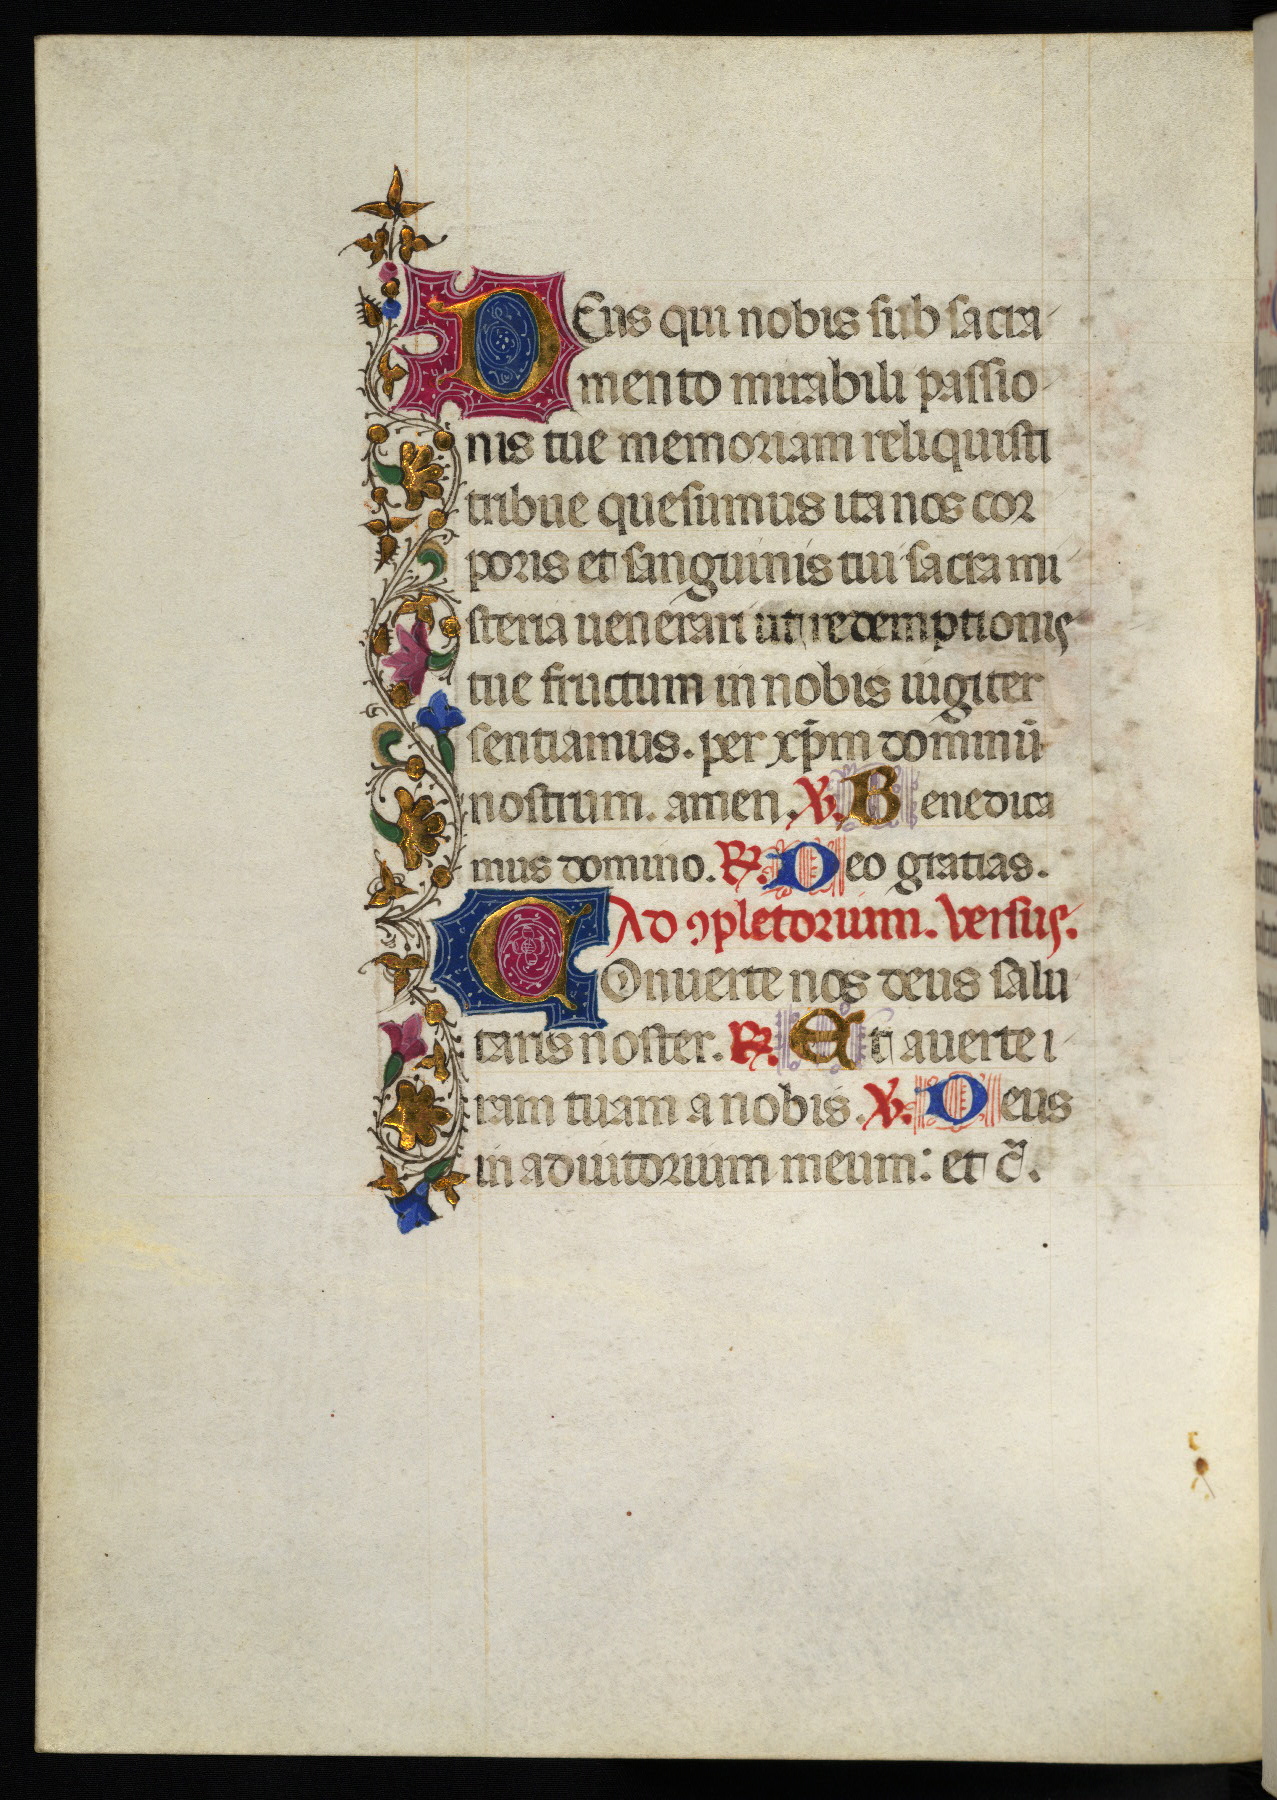 DEus qui nobis sub sacra
mento mirabili passio
nis tue memoriam reliquisti
tribue quesumus ita nos cor
poris et sanguinis tui sacra mi
steria uenerari ut redemptionis
tue fructum in nobis iugiter
sentiamus. per xp̄m dominū
nostrum. amen. ℣. Benedica
mus domino. ℟. Deo gratias.
Ad ꝯpletorium. versus.
COnuerte nos deus salu
taris noster. ℟. Et auerte i
ram tuam a nobis. ℣. Deus
in adiutorium meum: et c̄.